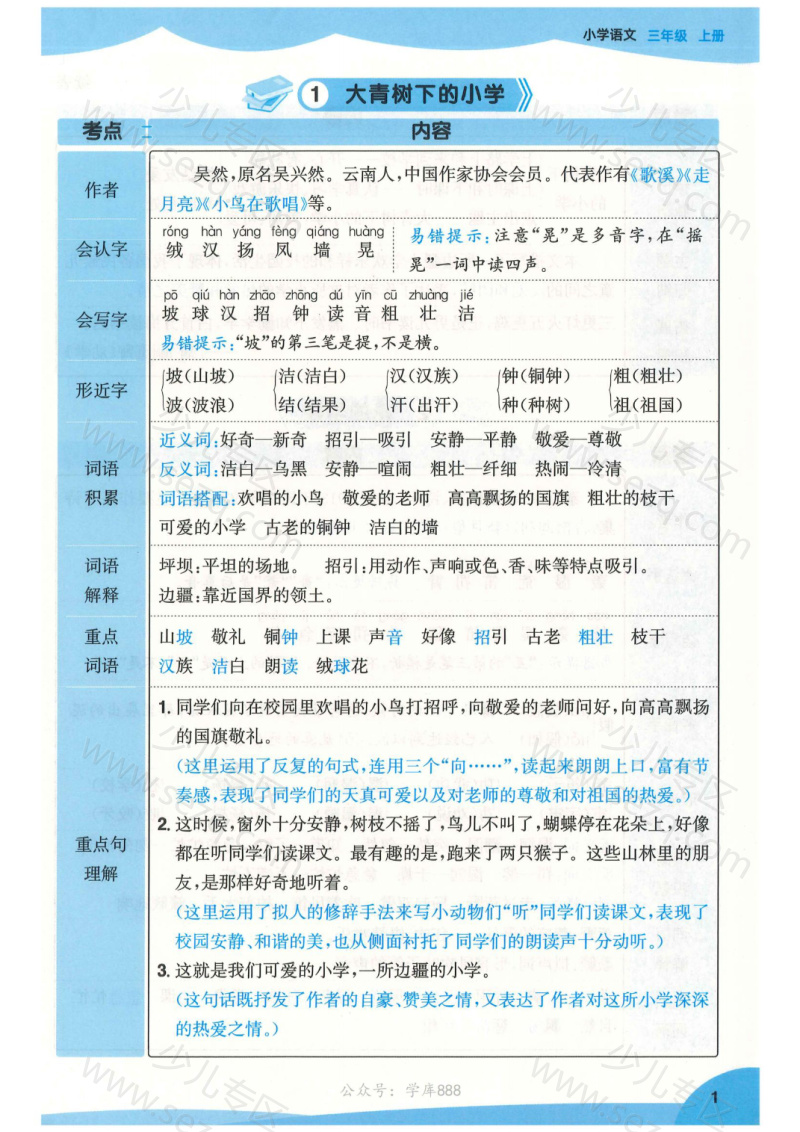 小学语文 三年级 上册
1 大青树下的小学
考点 内容
作者
吴然,原名吴兴然。云南人,中国作家协会会员。代表作有《歌溪》《走
月亮》《小鸟在歌唱》等。
会认字
róng hàn yáng fèng qiáng huàng
绒 汉 扬 凤 墙 晃
易错提示:注意“晃”是多音字,在“摇
晃”一词中读四声。
会写字
pō qiú hàn zhāo zhōng dú yīn cū zhuàng jié
坡 球 汉 招 钟 读 音 粗 壮 洁
易错提示:“坡”的第三笔是提,不是横。
形近字
坡(山坡) 洁(洁白) 汉(汉族) 钟(铜钟) 粗(粗壮)
波(波浪) 结(结果) 汗(出汗) 种(种树) 祖(祖国)
词语
积累
近义词:好奇—新奇 招引—吸引 安静—平静 敬爱—尊敬
反义词:洁白—乌黑 安静—喧闹 粗壮—纤细 热闹—冷清
词语搭配:欢唱的小鸟 敬爱的老师 高高飘扬的国旗 粗壮的枝干
可爱的小学 古老的铜钟 洁白的墙
词语
解释
坪坝:平坦的场地。 招引:用动作、声响或色、香、味等特点吸引。
边疆:靠近国界的领土。
重点
词语
山坡 敬礼 铜钟 上课 声音 好像 招引 古老 粗壮 枝干
汉族 洁白 朗读 绒球花
重点句
理解
1. 同学们向在校园里欢唱的小鸟打招呼,向敬爱的老师问好,向高高飘扬
的国旗敬礼。
(这里运用了反复的句式,连用三个“向……”,读起来朗朗上口,富有节
奏感,表现了同学们的天真可爱以及对老师的尊敬和对祖国的热爱。)
2. 这时候,窗外十分安静,树枝不摇了,鸟儿不叫了,蝴蝶停在花朵上,好像
都在听同学们读课文。最有趣的是,跑来了两只猴子。这些山林里的朋
友,是那样好奇地听着。
(这里运用了拟人的修辞手法来写小动物们“听”同学们读课文,表现了
校园安静、和谐的美,也从侧面衬托了同学们的朗读声十分动听。)
3. 这就是我们可爱的小学,一所边疆的小学。
(这句话既抒发了作者的自豪、赞美之情,又表达了作者对这所小学深深
的热爱之情。)
公众号：学库888
1
少儿专区
www.sezq.com